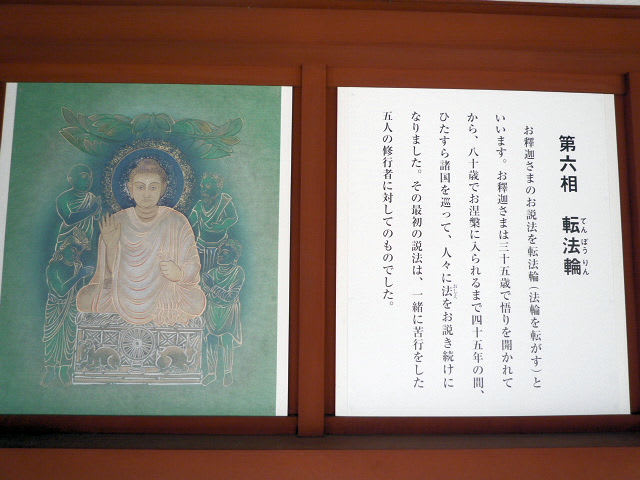 第六相 転法輪
てんぽうりん
お釋迦さまのお説法を転法輪(法輪を転がす)と
いいます。お釋迦さまは三十五歳で悟りを開かれて
から、八十歳でお涅槃に入られるまで四十五年の間、
ひたすら諸国を巡って、人々に法をお説き続けに
おしえ
なりました。その最初の説法は、一緒に苦行をした
五人の修行者に対してのものでした。